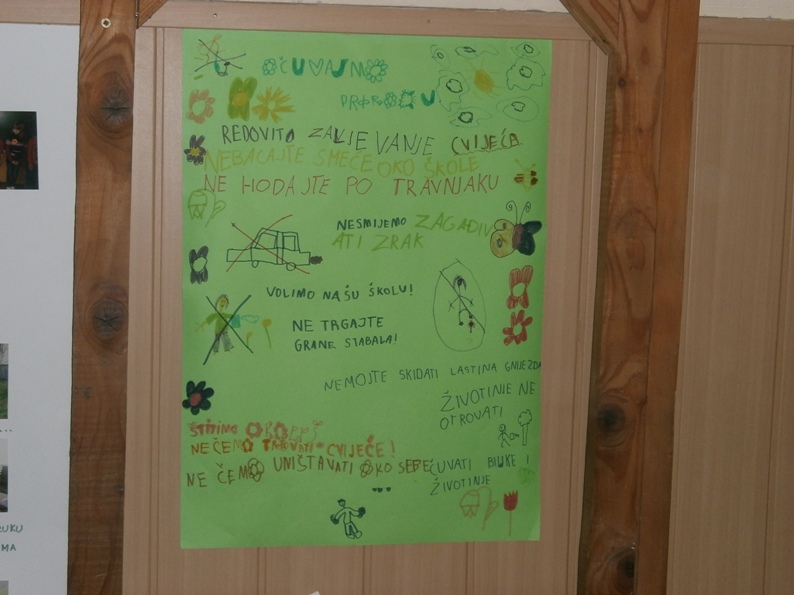 OČUVAJMO
PRIRODU
REDOVITO ZALJEVANJE CVIJEĆA
NEBACAJTE SMEĆE OKO ŠKOLE
NE HODAJTE PO TRAVNJAKU
NESMIJEMO ZAGAĐIV
ATI ZRAK
VOLIMO NAŠU ŠKOLU!
NE TRGAJTE
GRANE STABALA!
NEMOJTE SKIDATI LASTINA GNIJEZDA
ŽIVOTINJE NE
OTROVATI
ŠTITIMO
NEČEMO TROVATI CVIJEĆE!
NE ČEMO UNIŠTAVATI OKO SEBE
ČUVATI BILJKE I
ŽIVOTINJE
RUKU
MA